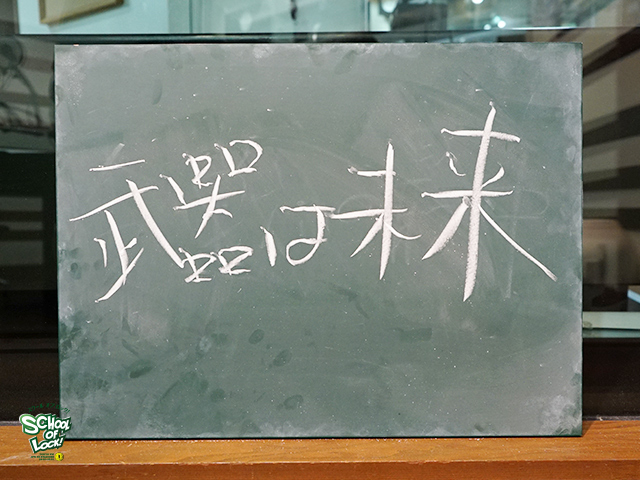 武器は未来
SCHOOL
OF
LOCK!